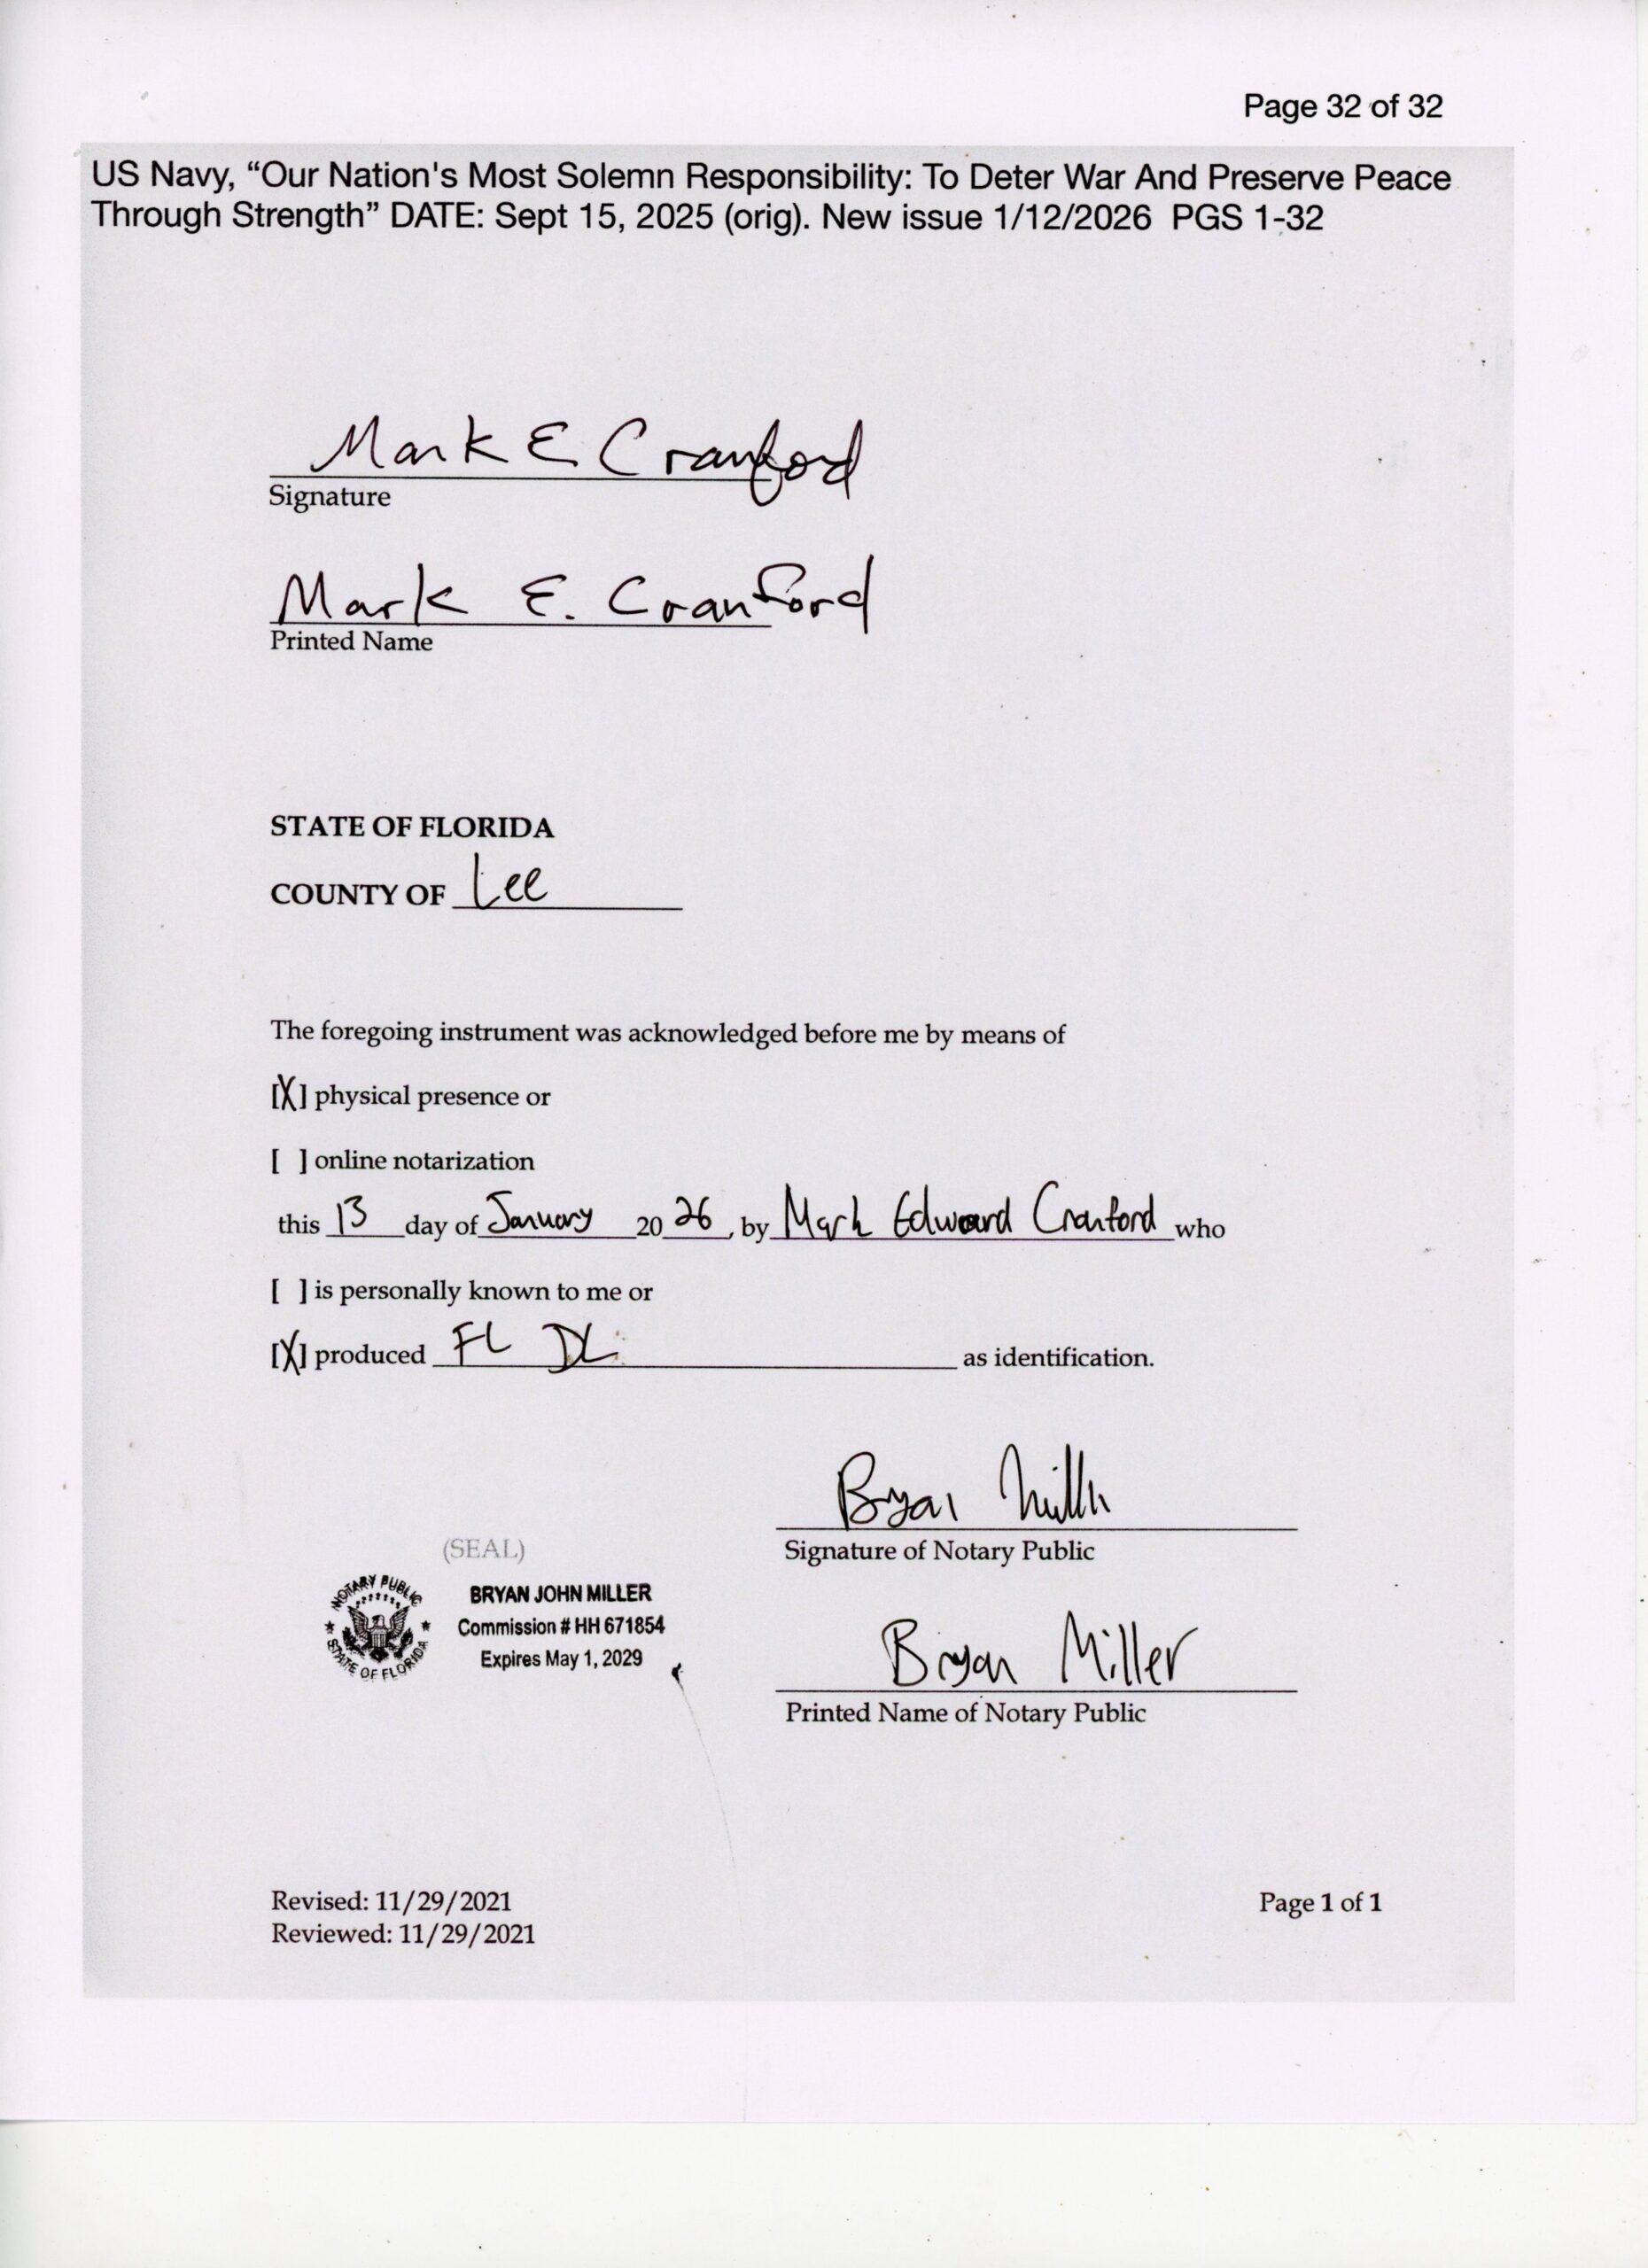 Page 32 of 32
US Navy, “Our Nation's Most Solemn Responsibility: To Deter War And Preserve Peace
Through Strength” DATE: Sept 15, 2025 (orig). New issue 1/12/2026 PGS 1-32
Mark E Cranford
Signature
Mark E. Cranford
Printed Name
STATE OF FLORIDA
COUNTY OF Lee
The foregoing instrument was acknowledged before me by means of
[X] physical presence or
[ ] online notarization
this 13 day of January 20 26, by Mark Edward Cranford who
[ ] is personally known to me or
[X] produced FL DL as identification.
Bryan Miller
Signature of Notary Public
(SEAL)
NOTARY PUBLIC
STATE OF FLORIDA
BRYAN JOHN MILLER
Commission # HH 671854
Expires May 1, 2029
Bryan Miller
Printed Name of Notary Public
Revised: 11/29/2021
Reviewed: 11/29/2021
Page 1 of 1